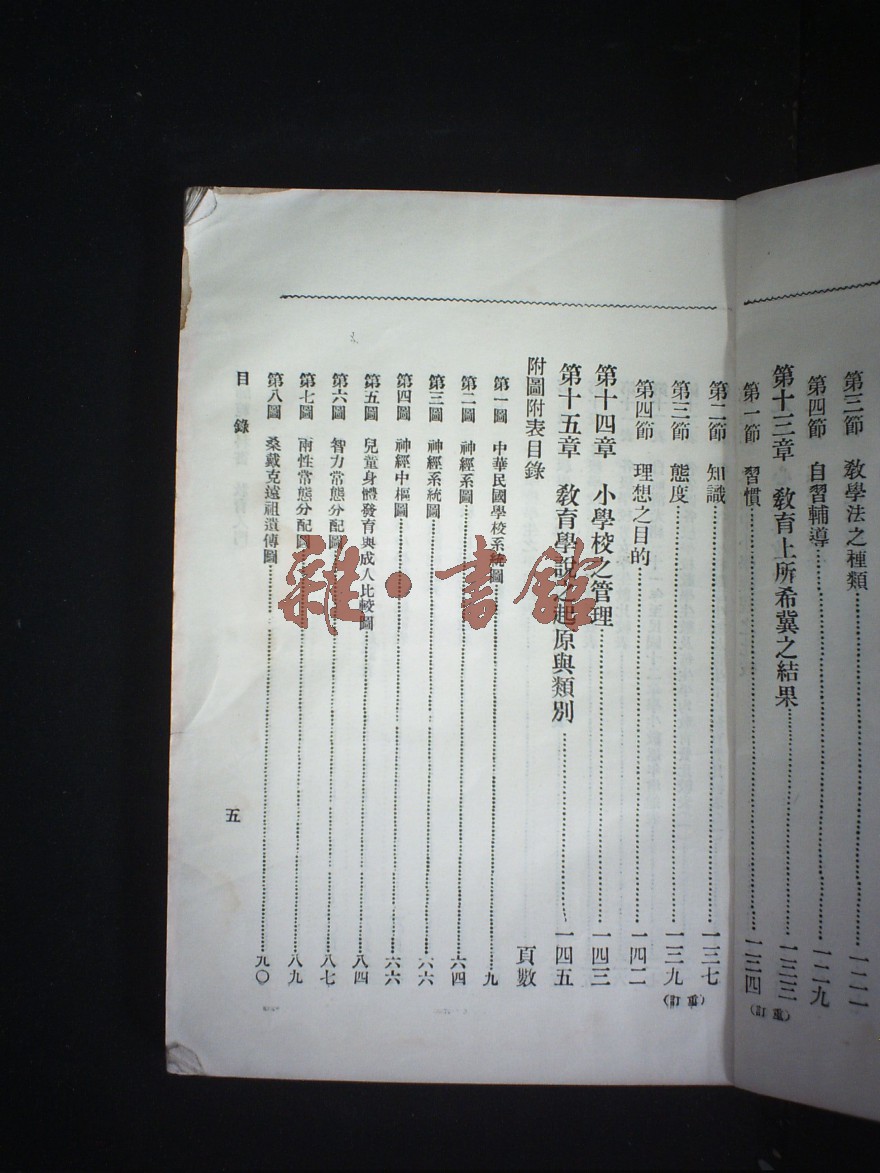 第三節　教學法之種類……一二一
第四節　自習輔導……一二九
第十三章　教育上所希冀之結果……一三三
第一節　習慣……一三四
（重訂）
第二節　知識……一三七
第三節　態度……一三九
第四節　理想之目的……一四二
第十四章　小學校之管理……一四三
第十五章　教育學說之起原與類別……一四五
附圖附表目錄　頁數
第一圖　中華民國學校系統圖……九
第二圖　神經系圖……六四
第三圖　神經系統圖……六六
第四圖　神經中樞圖……六六
第五圖　兒童身體發育與成人比較圖……八四
第六圖　智力常態分配圖……八七
第七圖　兩性常態分配圖……八九
第八圖　桑戴克遠祖遺傳圖……九〇
目錄　五
（重訂）
雜·書館